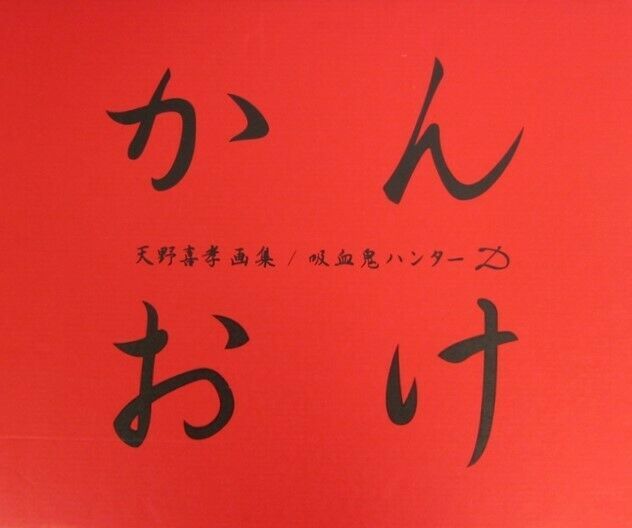 かん
天野喜孝画集 / 吸血鬼ハンター D
おけ